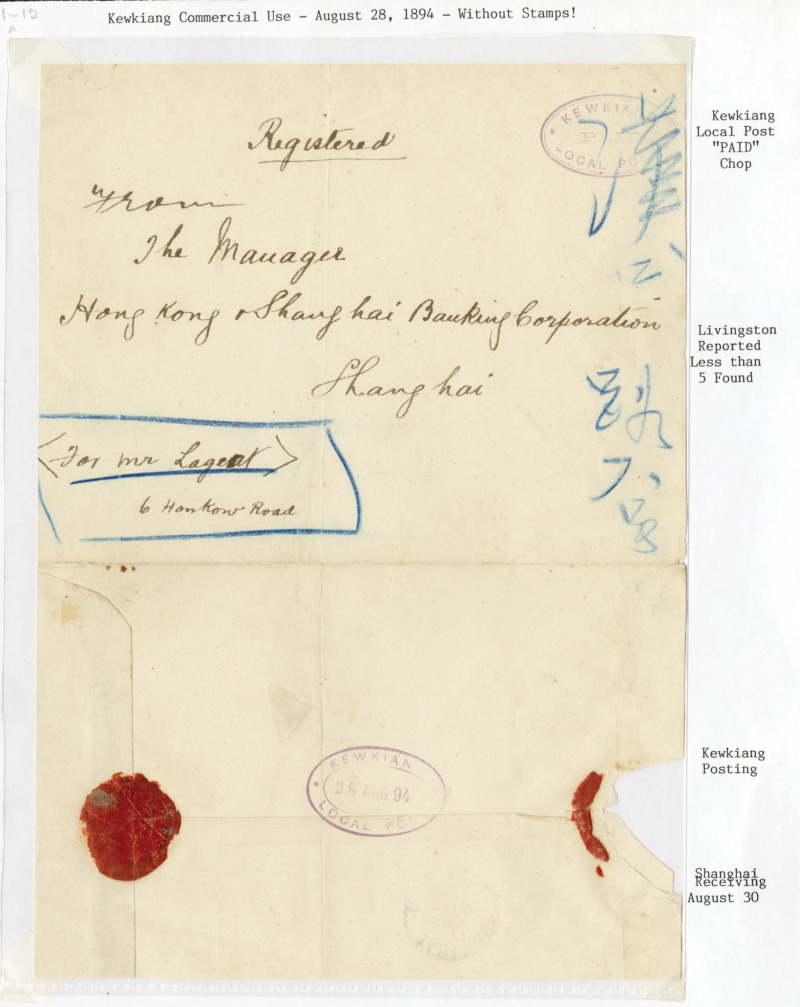 1-12
A
Kewkiang Commercial Use - August 28, 1894 - Without Stamps!
KEWKIAN
PAID
LOCAL PO
Registered
From
The Manager
Hong Kong & Shanghai Banking Corporation
Shanghai
<For Mr Lagent>
6 Hankow Road
六号
Kewkiang
Local Post
"PAID"
Chop
Livingston
Reported
Less than
5 Found
KEWKIAN
28 AUG 94
LOCAL PO
Kewkiang
Posting
Shanghai
Receiving
August 30